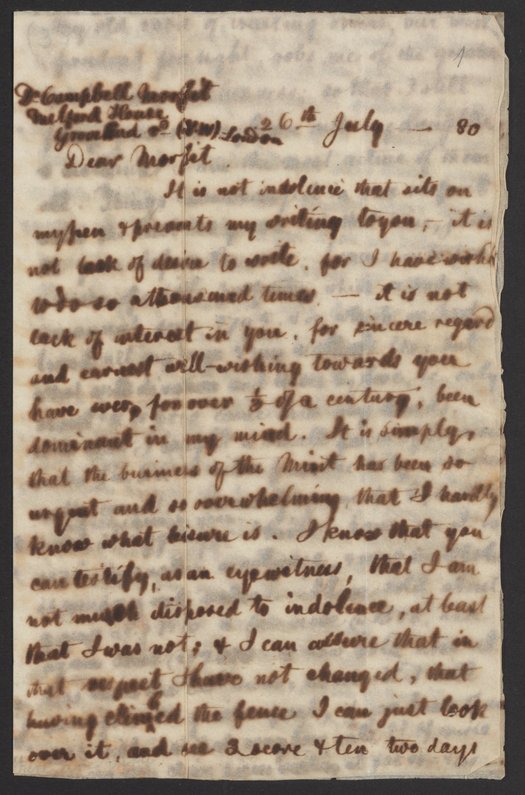 1
Dr Campbell Morfit
House
Road (NW) London
26th July — 80
Dear Morfit.
It is not indolence that sits on
my pen & prevents my writing to you, — it is
not lack of desire to write, for I have wished
to do so a thousand times, — it is not
lack of interest in you, for sincere regard
and earnest well-wishing towards you
have ever, for over ⅓ of a century, been
dominant in my mind. It is simply,
that the business of the Mint has been so
urgent and so overwhelming, that I hardly
know what leisure is. I know that you
can testify, as an eyewitness, that I am
not much disposed to indolence, at least
that I was not; & I can assure that in
that respect I have not changed, that
having climbed the fence I can just look
over it, and see 3 score & ten two days